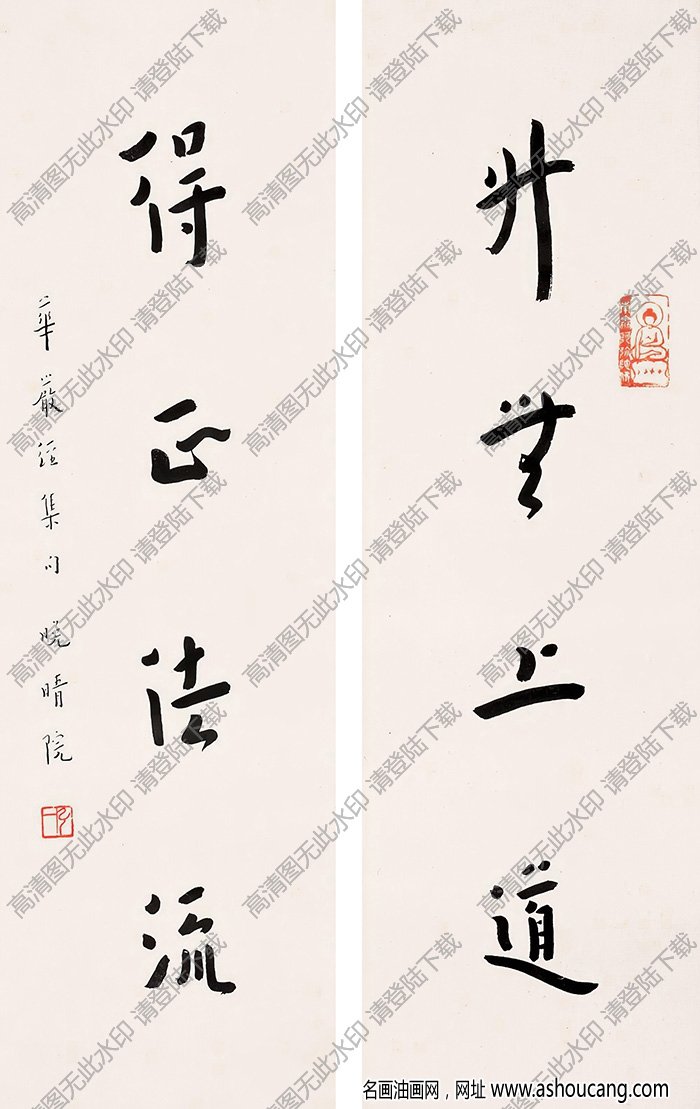 升無上道
得正法流
華嚴經集句 晚晴院
弘一
高清图无此水印 请登陆下载
名画油画网，网址 www.ashoucang.com